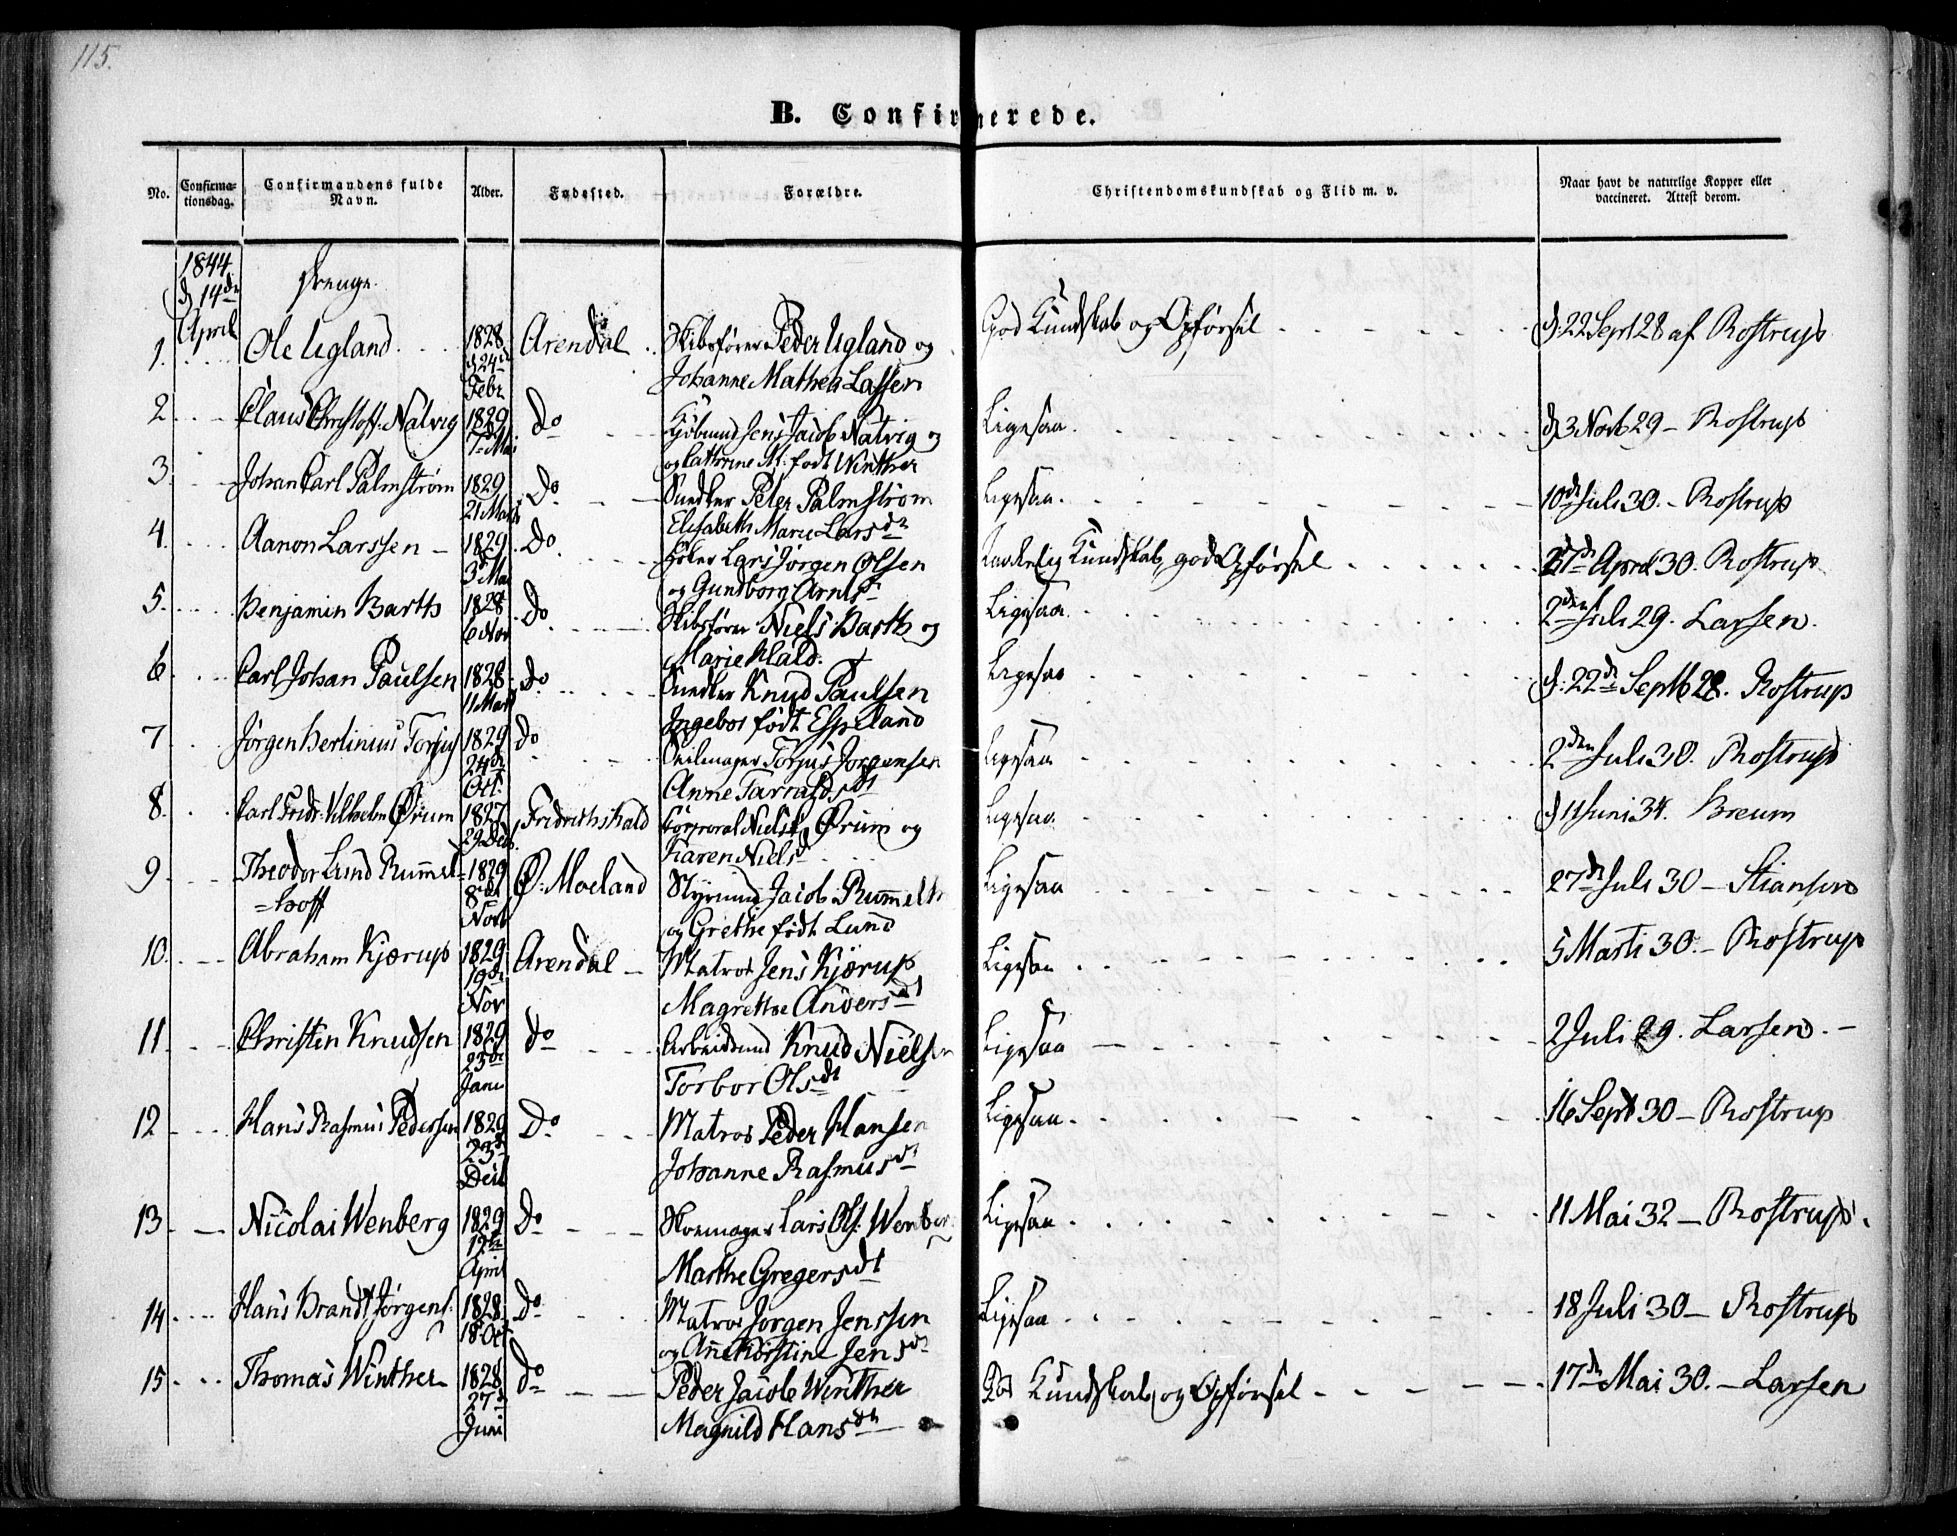 115.
B. Confirmerede.
No.
Confirma-
tionsdag.
Confirmandens fulde
Navn.
Alder.
Fødested.
Forældre.
Christendomskundskab og Flid m. v.
Naar havt de naturlige Kopper eller
vaccineret. Attest derom.
1844
d 14de
April
Drenge.
1. Ole Ugland 1828 d 24de Febr Arendal Skibsfører Peder Ugland og God Kundskab og Opførsel d: 22 Sept 28 af Rostrup
Johanne Mathea Lassen
2 Claus Christoff: Natvig 1829 7de Mai Do Kjøbmd Jens Jacob Natvig og Ligesaa d 3 Novb 29 - Rostrup
og Cathrine M. født Winther
3. Johan Carl Palmstrøm 1829 21 Marts Do Snedker Peter Palmstrøm Ligesaa 10de Juli 30. - Rostrup
Elisabeth Marie Larsdt
4. Aanon Larssen 1829 3de Mai Do Lars Jørgen Olsen Kundskab, god Opførsel April 30. Rostrup
og Gundborg
5. Benjamin Barth 1828 6 Nov Do Skibsfører Niels Barth og Ligesaa 2den Juli 29. Larsen.
Marie Klald.
6 Carl Johan Paulsen 1828 11 Marts Do Snedker Knud Paulsen Ligesaa d: 22de Septb 28. Rostrup
Ingebor født Espeland
7 Jørgen Bertinius Torjus 1829 24de Oct. do Seilmager Torjus Jørgensen Ligesaa 2den Juli 30. Rostrup
Anne Tarraldsdt
8. Carl Fridr: Vilhelm Ørum 1827 29 Decb. Fridrichshald Corporal Niels Ørum og Ligesaa d 11 Juni 34. Breum
Karen Nielsd
9 Theodor Lund Rummel- 1829 8de Novb Ø: Moeland Styrmd Jacob Rummelh Ligesaa 27de Juli 30 - Stiansen
=hoff og Grethe født Lund
10. Abraham Kjærup 1829 19de Nov Arendal Matros Jens Kjærup Ligesaa 5 Marti 30. - Rostrup
Magrethe Andersdt
11 Christen Knudsen 1829 23de Janu do Arbeidsmd Knud Nielsen Ligesaa 2 Juli 29. Larsen. -
Torbor Olsdt
12 Hans Rasmus Pedersen 1829 23d Do Matros Peder Hansen Ligesaa. 16 Sept 30 - Rostrup
Johanne Rasmusdt
13. Nicolai Wenberg 1829 12te April Do Skomager Lars Ols: Wenber Ligesaa 11 Mai 32 - Rostrup.
Marthe Gregersdt
14. Hans Brandt Jørgens. 1828 18 Oct Do Matros Jørgen Jenssen Ligesaa 18 Juli 30 - Rostrup
og Ane Kirstine Jensdt
15 Thomas Winther 1828 27de Juni do Peder Jacob Winther God Kundskab og Opførsel 17de Mai 30. - Larsen
Magnild Hansdt